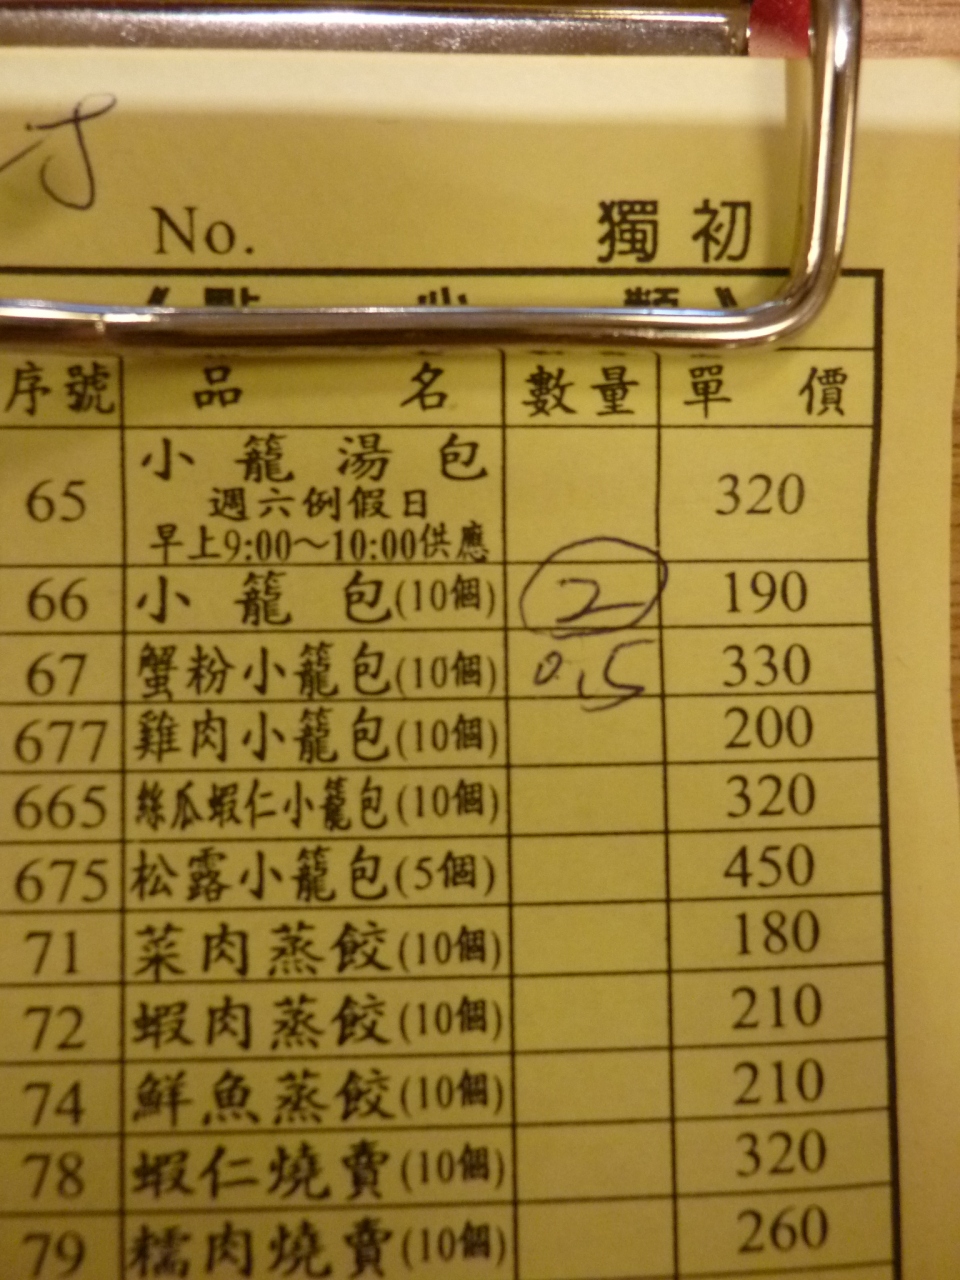 No. 獨 初
《 點 心 類 》
序號 品 名 數量 單 價
65 小籠湯包 320
週六例假日
早上9:00~10:00供應
66 小籠包(10個) 2 190
67 蟹粉小籠包(10個) 0.5 330
677 雞肉小籠包(10個) 200
665 絲瓜蝦仁小籠包(10個) 320
675 松露小籠包(5個) 450
71 菜肉蒸餃(10個) 180
72 蝦肉蒸餃(10個) 210
74 鮮魚蒸餃(10個) 210
78 蝦仁燒賣(10個) 320
79 糯肉燒賣(10個) 260